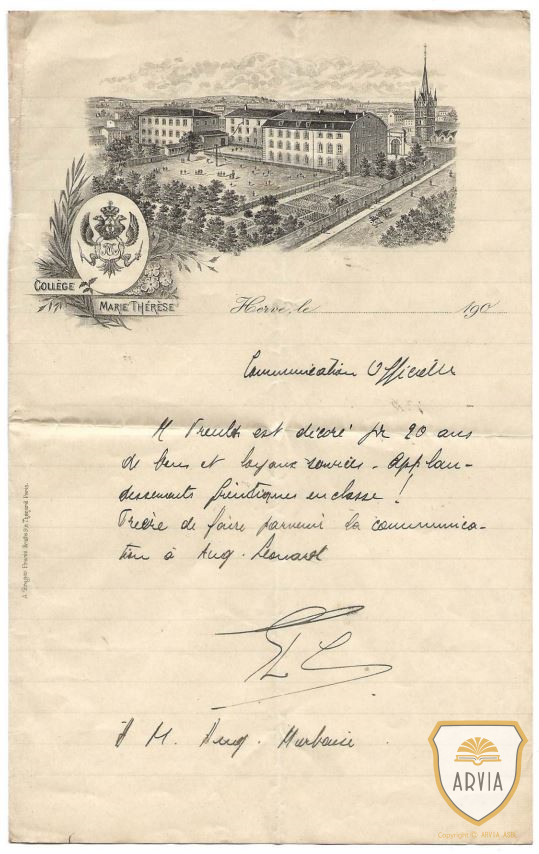 COLLÈGE
MARIE THÉRÈSE
Herve, le 190
Communication Officielle
M est décoré pr 20 ans
de bons et loyaux services. Applau-
dissements frénétiques en classe !
Prière de faire parvenir la communica-
tion à Aug. Léonard
A M. Aug.
ARVIA
Copyright © ARVIA ASBL